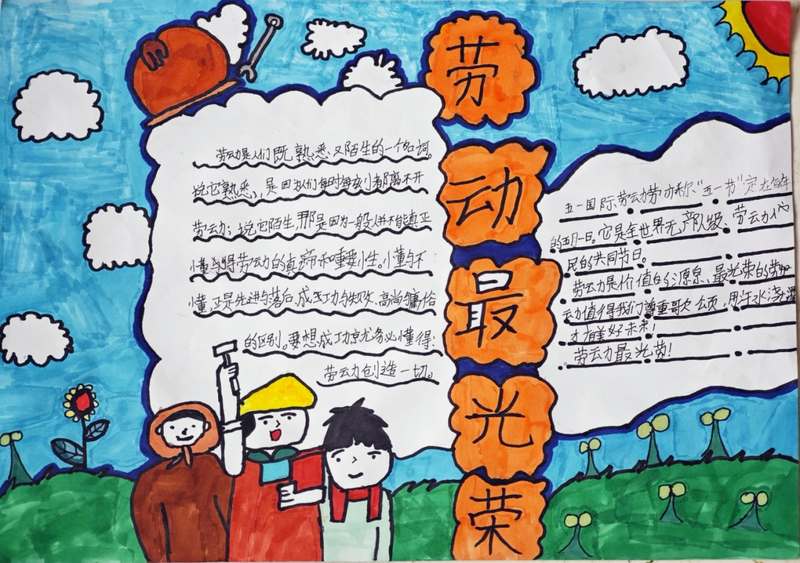 劳动最光荣
劳动是人们既熟悉又陌生的一个名词。
说它熟悉，是因为人们每时每刻都离不开
劳动；说它陌生，那是因为一般人并不能真正
懂得劳动的真谛和重要性。懂与不
懂正是先进与落后，成功与失败，高尚与庸俗
的区别。要想成功就务必懂得：
劳动创造一切。
五一国际劳动劳动称"五一节"定在每年
的五月一日。它是全世界无产阶级、劳动人
民的共同节日。
劳动是价值的源泉、最光荣的劳动
动值得我们尊重歌颂，用汗水浇灌
才有美好未来！
劳动最光荣！